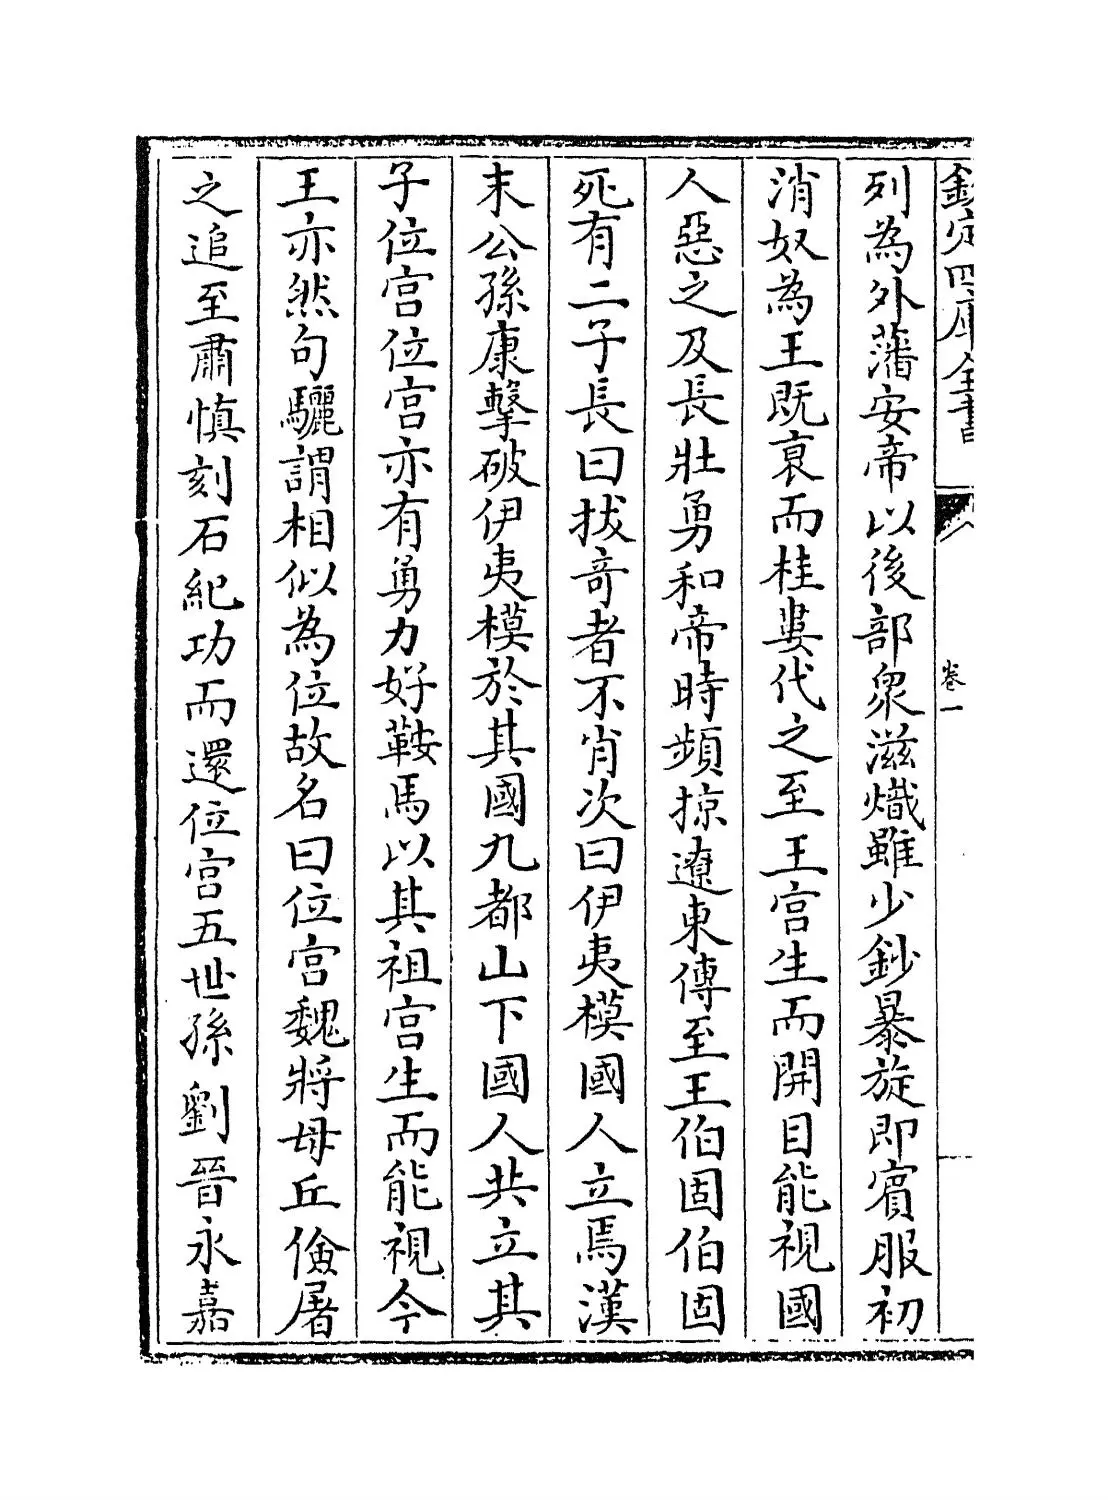 欽定四庫全書
卷一
列為外藩安帝以後部衆滋熾雖少鈔暴旋即賓服初
消奴為王既衰而桂婁代之至王宫生而開目能視國
人惡之及長壯勇和帝時頻掠遼東傳至王伯固伯固
死有二子長曰拔竒者不肖次曰伊夷模國人立焉漢
末公孫康擊破伊夷模於其國九都山下國人共立其
子位宫位宫亦有勇力好鞍馬以其祖宫生而能視今
王亦然句驪謂相似為位故名曰位宫魏將毋丘儉屠
之追至肅慎刻石紀功而還位宫五世孫劉晉永嘉